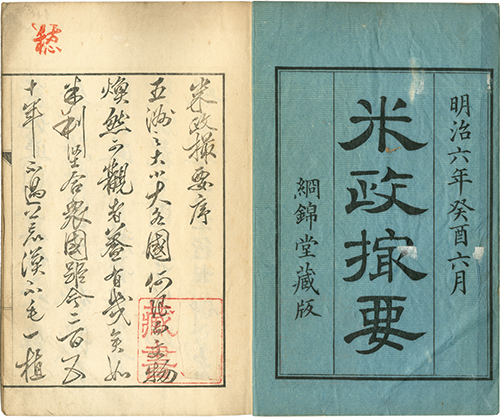 明治六年癸酉六月
米政撮要
綱錦堂藏版
米政撮要序
五洲之大各國何限文物
煥然可觀者蓋有幾矣如
米利堅合衆國距今二百五
十年不過荒漠不毛一植